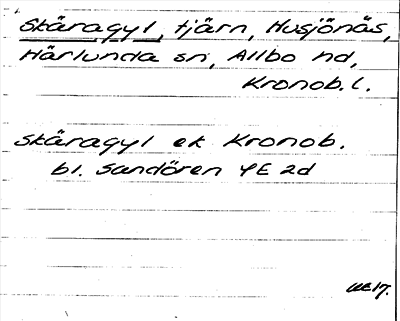 Skäragyl, tjärn, Husjönäs,
Härlunda sn, Allbo hd,
Kronob. l.
Skäragyl ek Kronob.
bl. Sandören 4E 2d